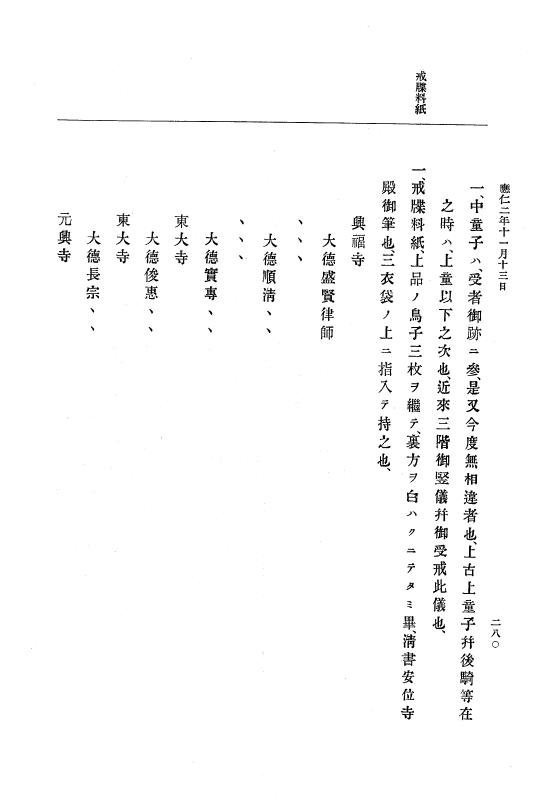 應仁二年十一月十三日
二八〇
一、中童子ハ、受者御跡ニ參、是又今度無相違者也、上古上童子幷後騎等在
之時ハ、上童以下之次也、近來三階御竪儀幷御受戒此儀也、
戒牒料紙
一、戒牒料紙、上品ノ鳥子三枚ヲ繼テ、裏方ヲ白ハクニテタミ畢、淸書安位寺
殿御筆也、三衣袋ノ上ニ指入テ持之也、
興福寺
大德盛賢律師
、、、
大德順淸、、
、、、
大德實專、、
東大寺
大德俊惠、、
東大寺
大德長宗、、
元興寺